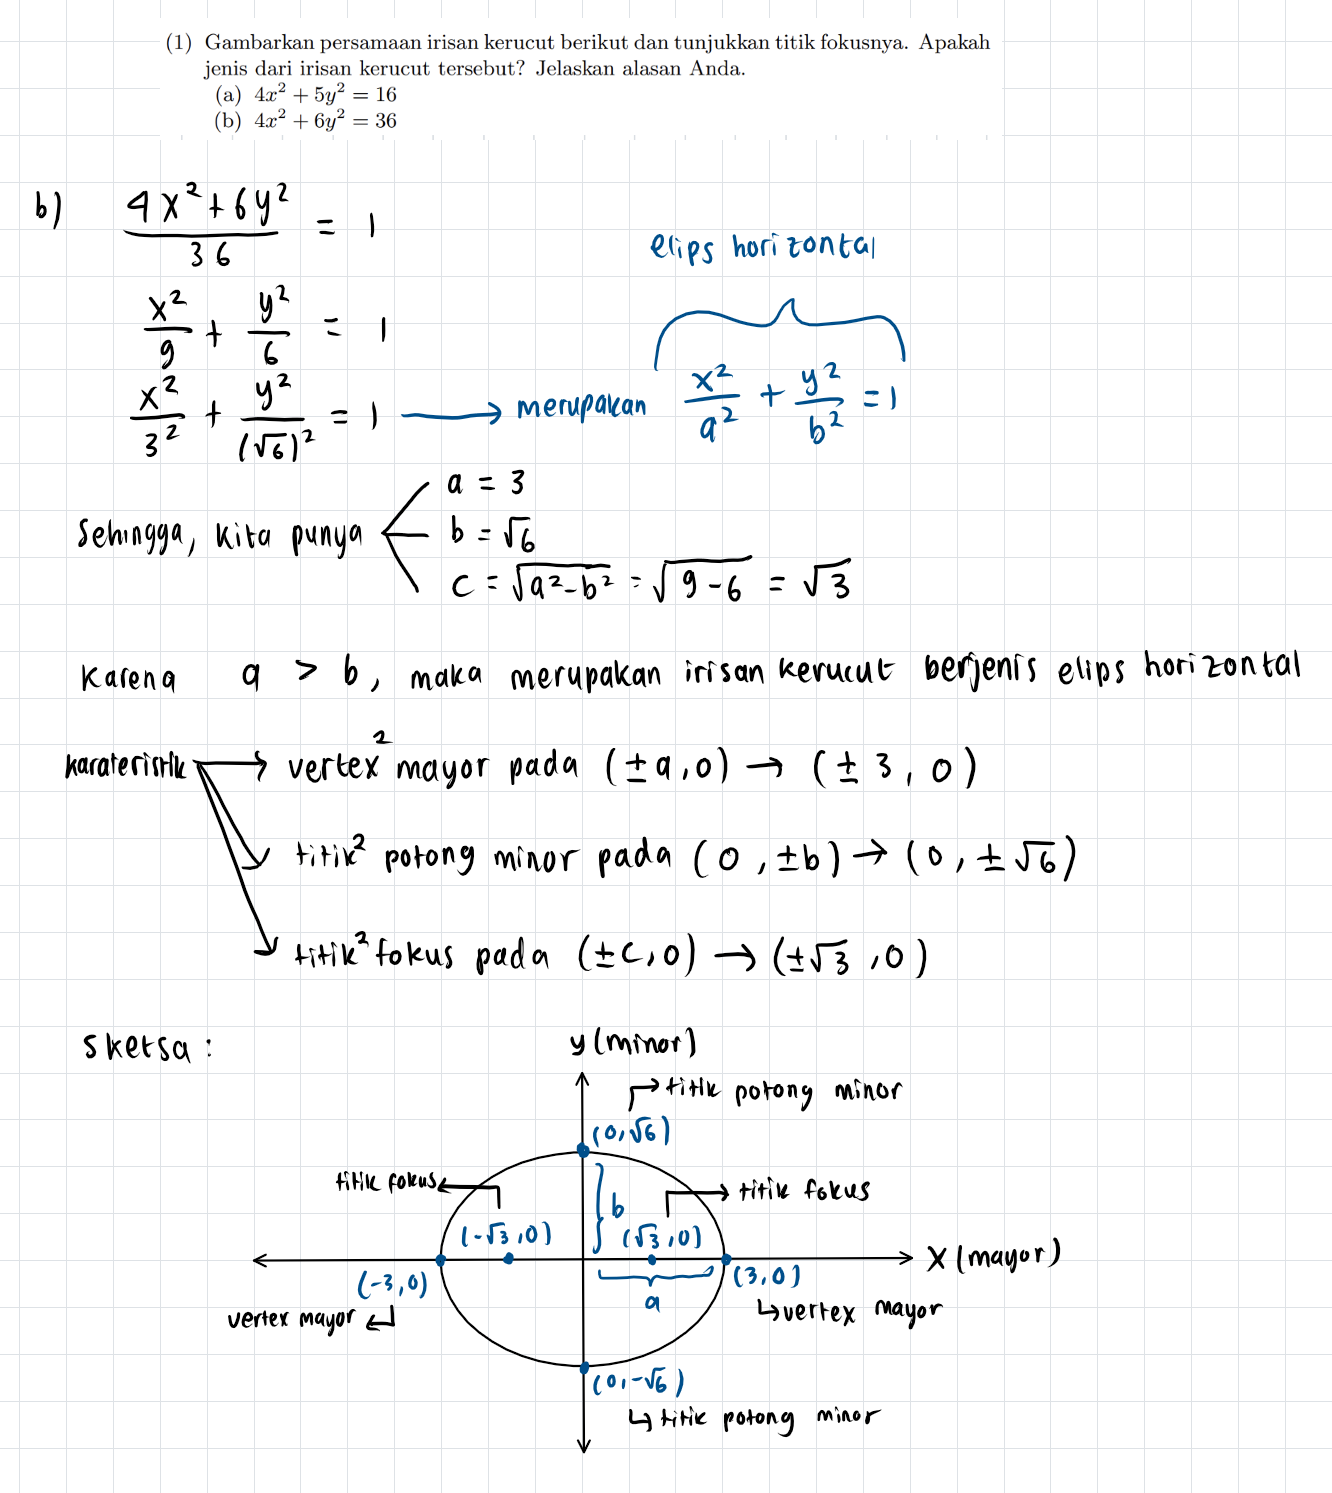 (1) Gambarkan persamaan irisan kerucut berikut dan tunjukkan titik fokusnya. Apakah
jenis dari irisan kerucut tersebut? Jelaskan alasan Anda.
(a) 4x² + 5y² = 16
(b) 4x² + 6y² = 36
b) (4x² + 6y²)/36 = 1
elips horizontal
x²/9 + y²/6 = 1
x²/3² + y²/(√6)² = 1 → merupakan x²/a² + y²/b² = 1
a = 3
Sehingga, kita punya b = √6
c = √(a²-b²) = √(9-6) = √3
Karena a > b, maka merupakan irisan kerucut berjenis elips horizontal
karateristik → vertex² mayor pada (±a,0) → (±3, 0)
titik² potong minor pada (0, ±b) → (0, ±√6)
titik² fokus pada (±c,0) → (±√3,0)
Sketsa :
y (minor)
titik potong minor
(0,√6)
titik fokus
b
titik fokus
(-√3,0)
(√3,0)
x (mayor)
(-3,0)
a
(3,0)
vertex mayor
vertex mayor
(0,-√6)
titik potong minor